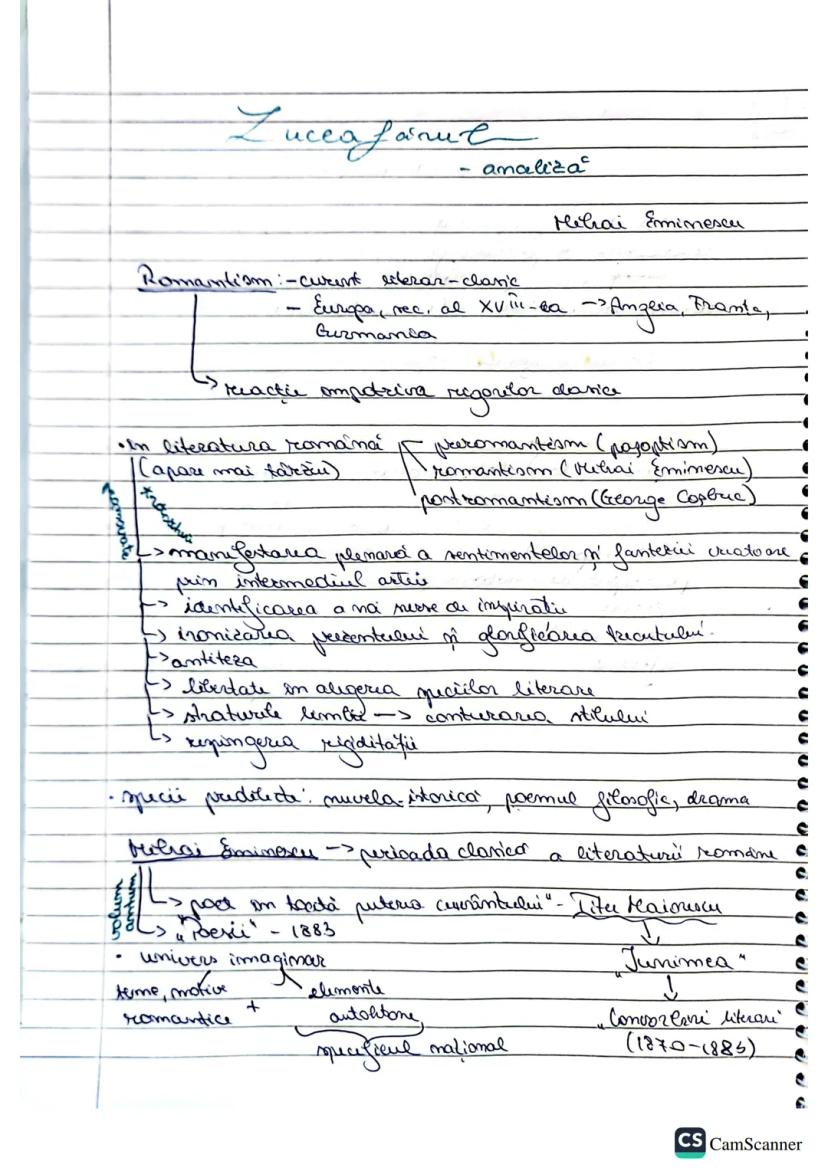 Luceafărul
- analiză
Mihai Eminescu
Romantism: - curent literar-clasic
- Europa, sec. al XVIII-lea -> Anglia, Franta,
Germania
-> reacție împotriva rigorilor clasice
• În literatura română
(apare mai târziu)
preromantism (pașoptism)
romantism (Mihai Eminescu)
postromantism (George Coșbuc)
trăsături
-> manifestarea plenară a sentimentelor și fanteziei creatoare
prin intermediul artei
-> identificarea a noi surse de inspiratie
-> ironizarea prezentului și glorificarea trecutului.
-> antiteza
-> libertate în alegerea speciilor literare
-> straturile limbii -> conturarea stilului
-> respingerea rigidității
• specii predilecte: nuvela istorică, poemul filosofic, drama
Mihai Eminescu -> perioada clasică a literaturii române
volum
antum
-> poet în toată puterea cuvântului" - Titu Maiorescu
-> „Poesii" - 1883
• univers imaginar
„Junimea"
teme, motive
romantice +
elemente
autohtone
specificul național
„Convorbiri literare"
(1870-1885)
CS CamScanner